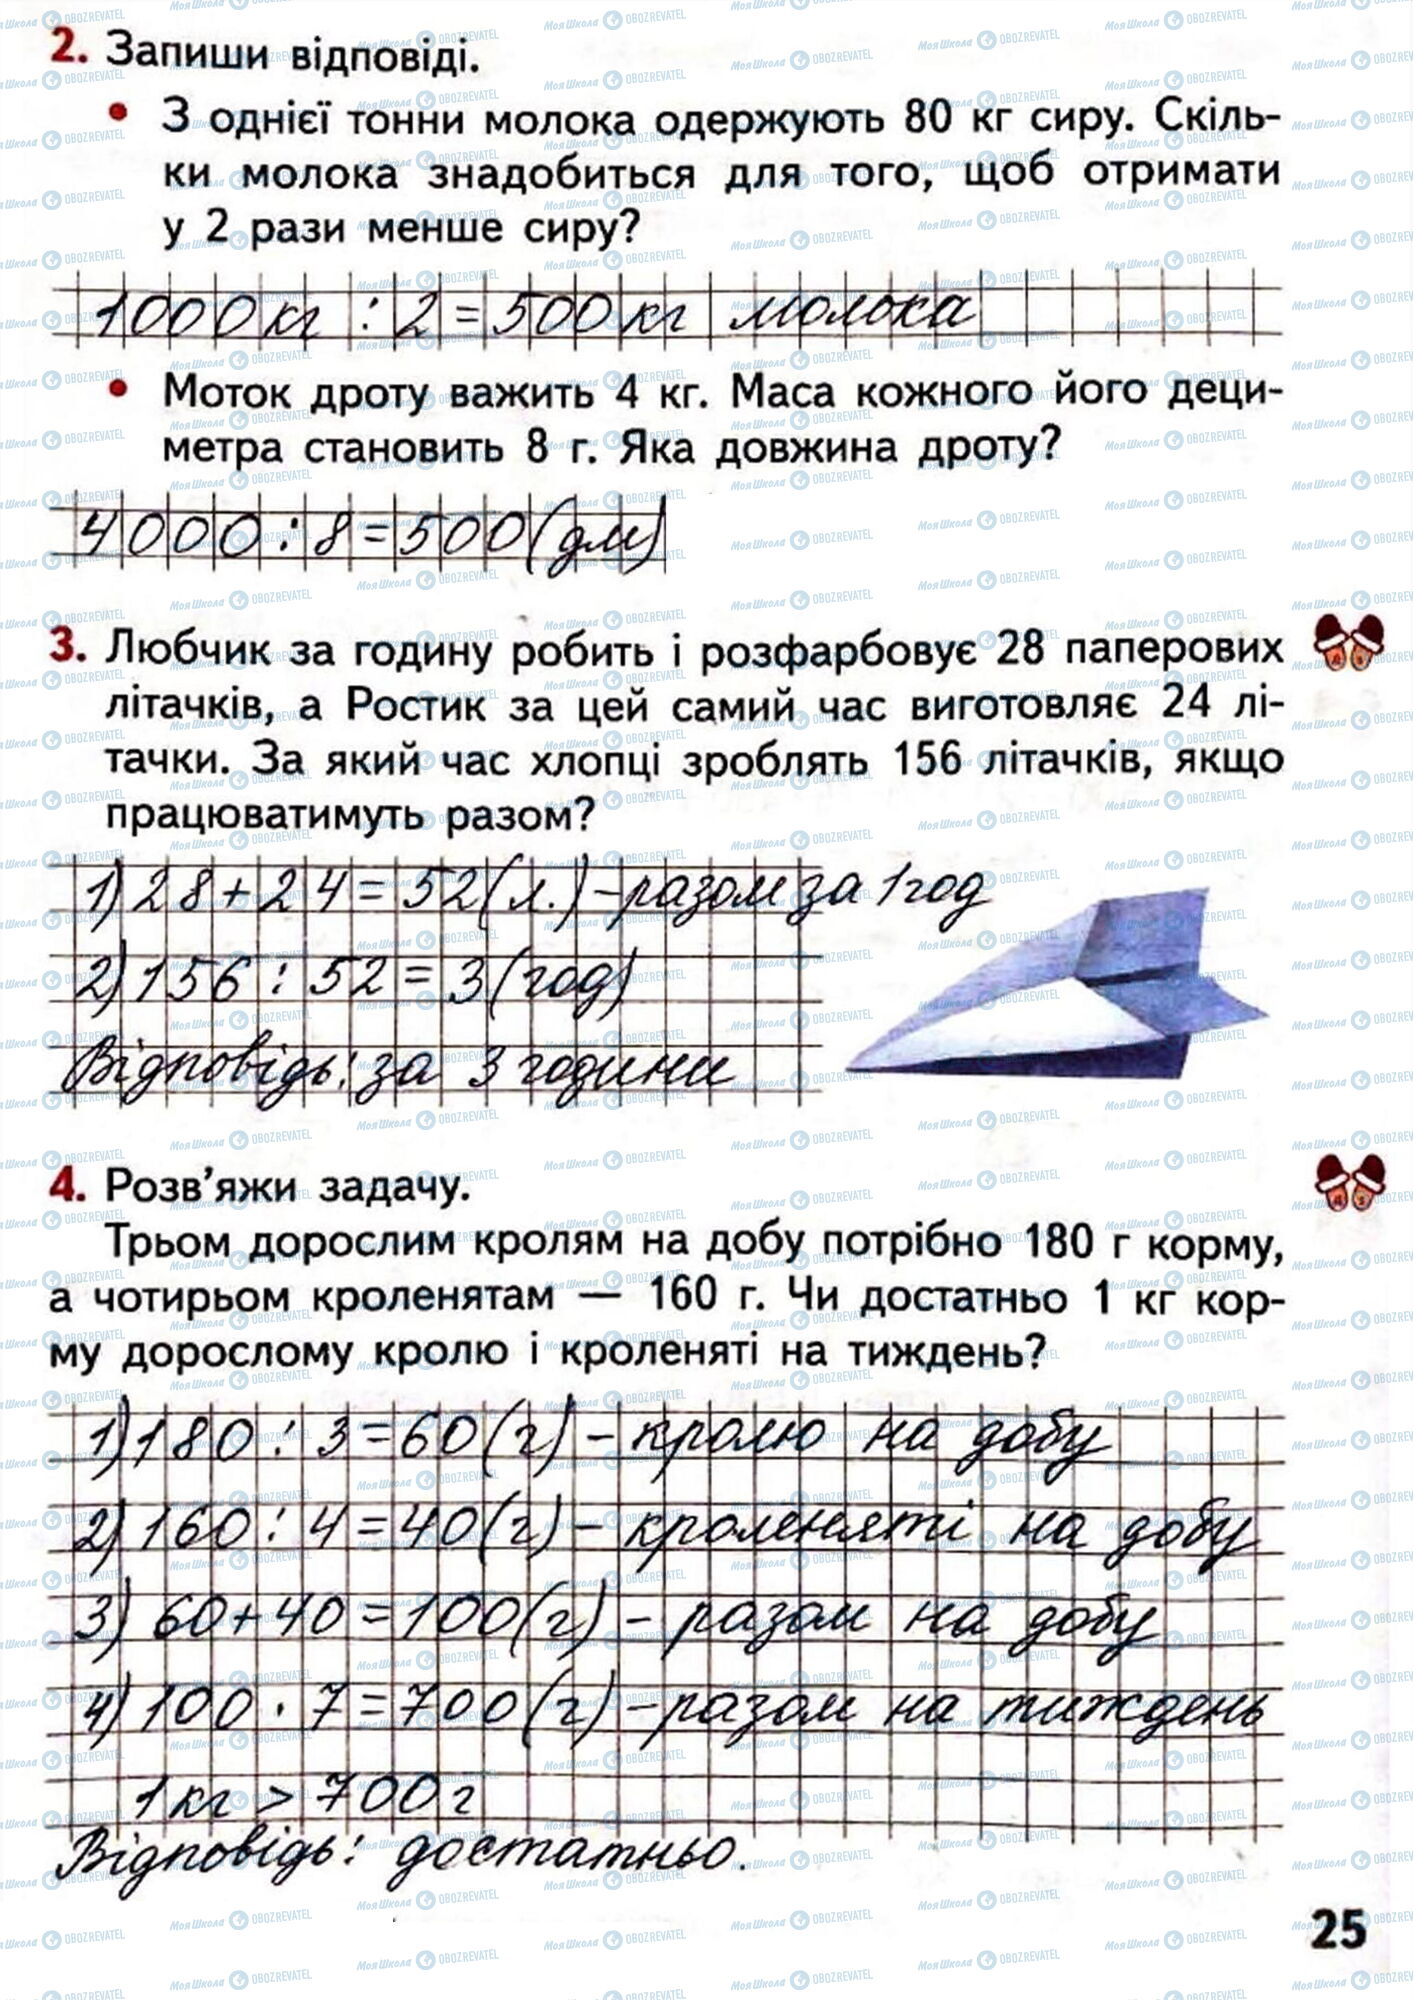 2. Запиши відповіді.
• З однієї тонни молока одержують 80 кг сиру. Скіль-
ки молока знадобиться для того, щоб отримати
у 2 рази менше сиру?
1000 кг : 2 = 500 кг молока
• Моток дроту важить 4 кг. Маса кожного його деци-
метра становить 8 г. Яка довжина дроту?
4000 : 8 = 500 (дм)
3. Любчик за годину робить і розфарбовує 28 паперових
літачків, а Ростик за цей самий час виготовляє 24 лі-
тачки. За який час хлопці зроблять 156 літачків, якщо
працюватимуть разом?
1) 28 + 24 = 52 (л.) – разом за 1 год
2) 156 : 52 = 3 (год)
Відповідь: за 3 години
4. Розв’яжи задачу.
Трьом дорослим кролям на добу потрібно 180 г корму,
а чотирьом кроленятам — 160 г. Чи достатньо 1 кг кор-
му дорослому кролю і кроленяті на тиждень?
1) 180 : 3 = 60 (г) – кролю на добу
2) 160 : 4 = 40 (г) – кроленяті на добу
3) 60 + 40 = 100 (г) – разом на добу
4) 100 · 7 = 700 (г) – разом на тиждень
1 кг > 700 г
Відповідь: достатньо.
25
МояШкола OBOZREVATEL